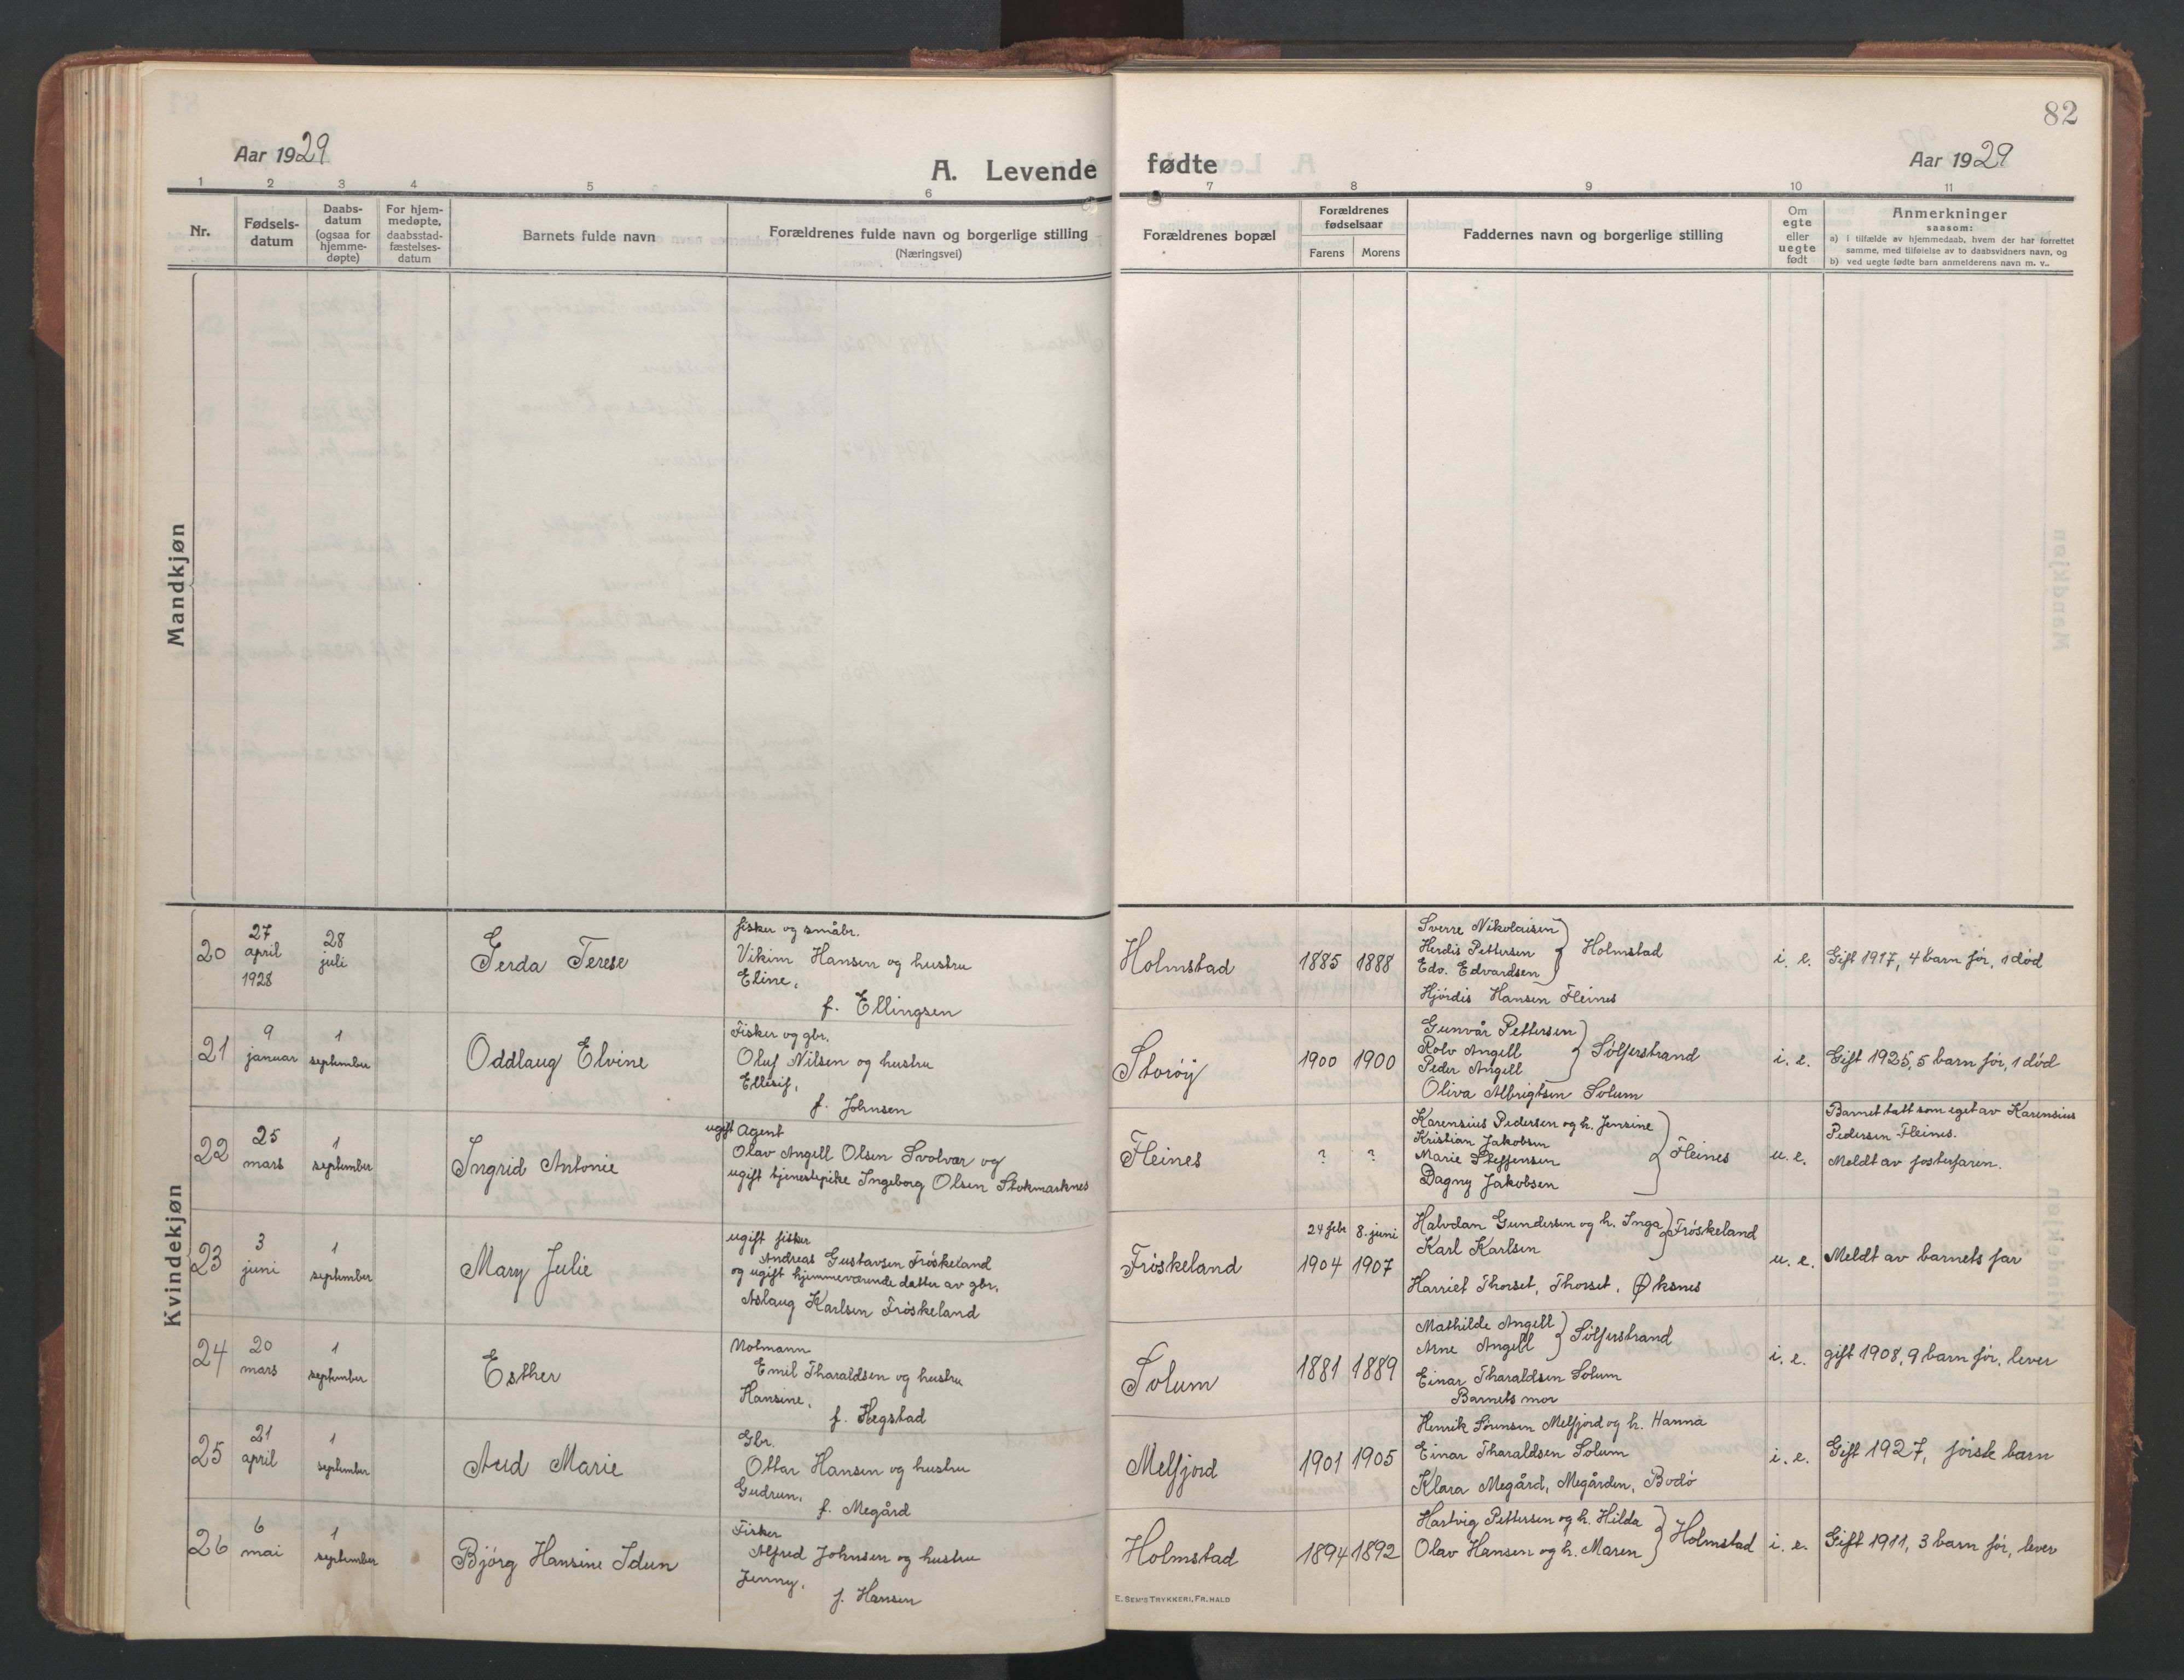 82
Aar 1929
A. Levende fødte
Aar 1929
1 2 3 4 5 6 7 8 9 10 11
Nr.
Fødsels-
datum
Daabs-
datum
(ogsaa for
hjemme-
døpte)
For hjem-
medøpte,
daabsstad-
fæstelses-
datum
Barnets fulde navn
Forældrenes fulde navn og borgerlige stilling
(Næringsvei)
Forældrenes bopæl
Forældrenes
fødselsaar
Farens Morens
Faddernes navn og borgerlige stilling
Om
egte
eller
uegte
født
Anmerkninger
saasom:
a) i tilfælde av hjemmedaab, hvem der har forrettet
samme, med tilføielse av to daabsvidners navn, og
b) ved uegte fødte barn anmelderens navn m. v..
Mandkjøn
Kvindekjøn
20
27
april
1928
28
juli
Gerda Terese
fisker og småbr.
Vikim Hansen og hustru
Eline,
f. Ellingsen
Holmstad
1885 1888
Sverre Nikolaisen
Herdis Pettersen
Edv. Edvardsen
Holmstad
Hjördis Hansen Fleines
i. e.
Gift 1917, 4 barn før, 1 död
21
9
januar
1
september
Oddlaug Elvine
Fisker og gbr.
Oluf Nilsen og hustru
Ellisif,
f. Johnsen
Storöy
1900 1900
Gunvår Pettersen
Rolv Angell
Peder Angell
Sölferstrand
Oliva Albrigtsen Solum
i. e.
Gift 1925, 5 barn för, 1 död
22
25
mars
1
september
Ingrid Antonie
ugift Agent
Olav Angell Olsen Svolvær og
ugift tjenestepike Ingeborg Olsen Stokmarknes
Fleines
? ?
Karensius Pedersen og h. Jensine
Kristian Jakobsen
Marie Steffensen
Dagny Jakobsen
Fleines
u. e.
Barnet tatt som eget av Karensius
Pedersen Fleines.
Meldt av fosterfaren.
23
3
juni
1
september
Mary Julie
ugift fisker
Andreas Gustavsen Fröskeland
og ugift hjemmeværende datter av gbr.
Aslaug Karlsen Fröskeland
Fröskeland
24 febr 8. juni
1904 1907
Halvdan Gundersen og h. Inga
Karl Karlsen
Fröskeland
Harriet Thorset, Thorset, Øksnes
u. e.
Meldt av barnets far
24
20
mars
1
september
Esther
Notmann
Emil Tharaldsen og hustru
Hansine,
f. Hegstad
Solum
1881 1889
Mathilde Angell
Arne Angell
Sölferstrand
Einar Tharaldsen Solum
Barnets mor
i. e.
gift 1908, 9 barn för, lever
25
21
april
1
september
Aud Marie
Gbr.
Ottar Hansen og hustru
Gudrun,
f. Megård
Melfjord
1901 1905
Henrik Sörensen Melfjord og h. Hanna
Einar Tharaldsen Solum
Klara Megård, Megården, Bodö
i. e.
Gift 1927, förste barn
26
6
mai
1
september
Björg Hansine Idun
Fisker
Alfred Johnsen og hustru
Jenny,
f. Hansen
Holmstad
1894 1892
Hartvig Pettersen og h. Hilda
Olav Hansen og h. Maren
Holmstad
i. e.
Gift 1911, 3 barn för, lever
E. SEM'S TRYKKERI, FR.HALD